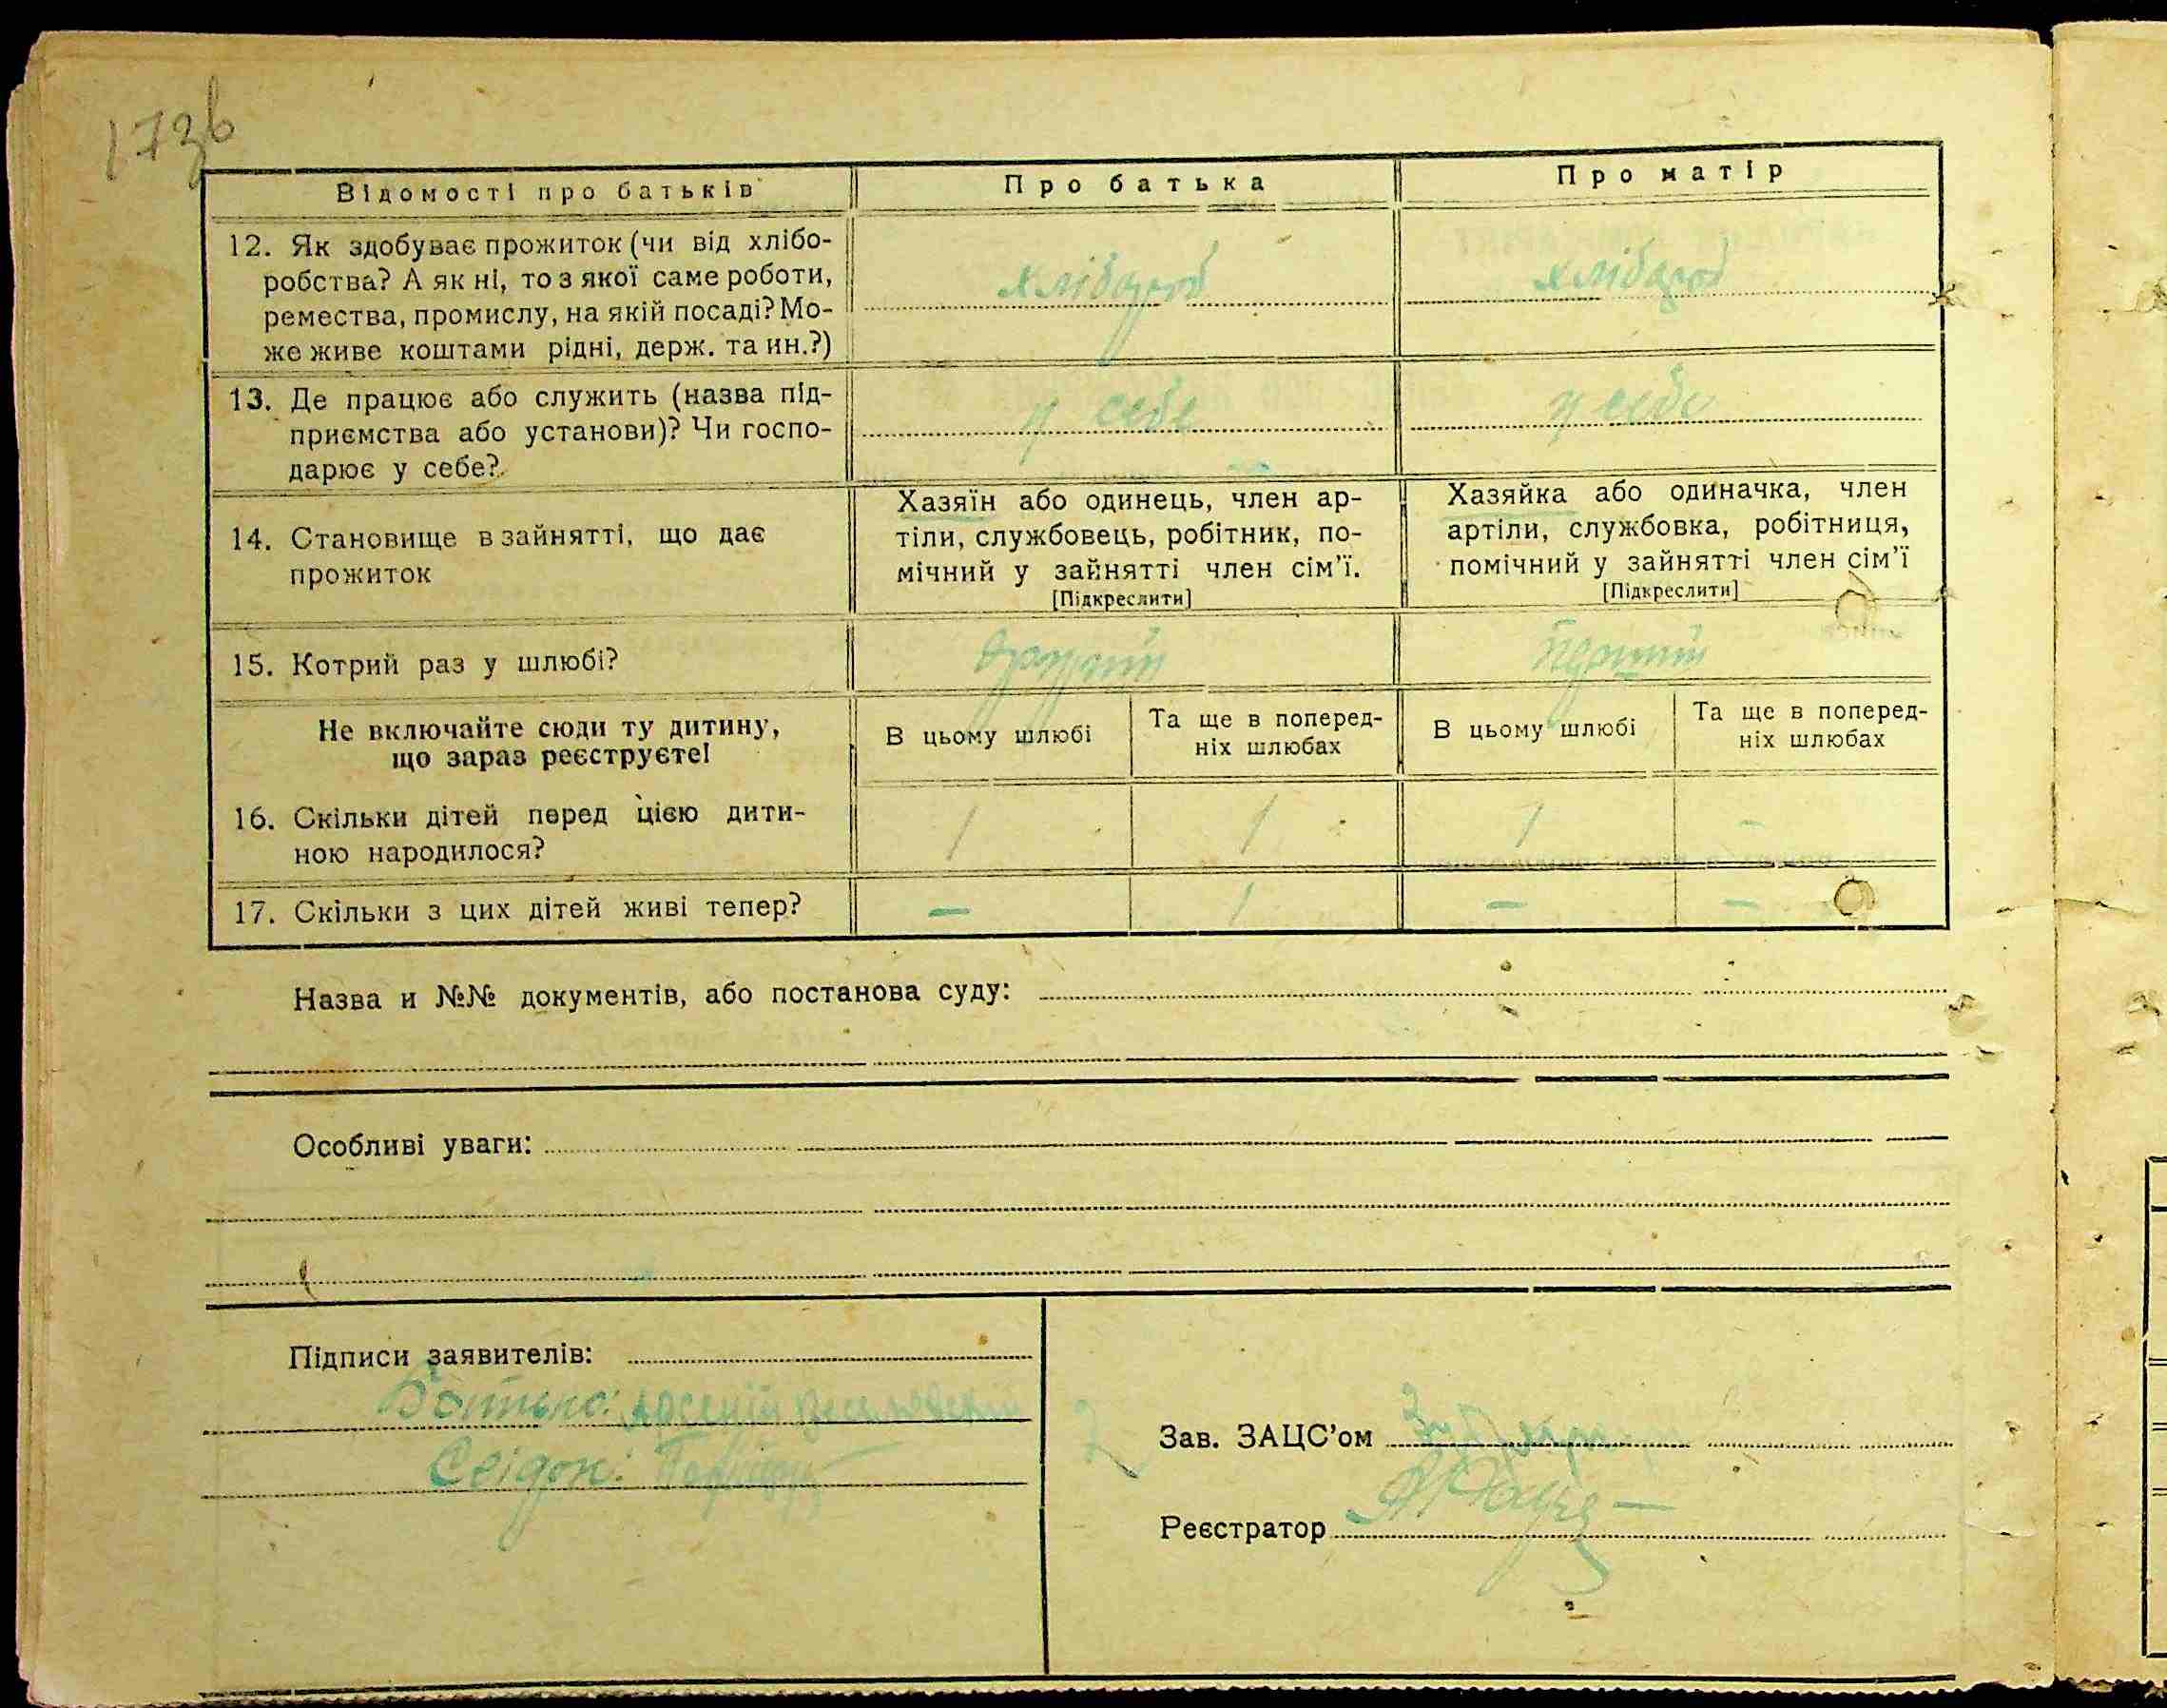 173б
Відомості про батьків
Про батька
Про матір
12. Як здобуває прожиток (чи від хлібо-
робства? А як ні, то з якої саме роботи,
ремества, промислу, на якій посаді? Мо-
же живе коштами рідні, держ. та ин.?)
хлібороб
хлібороб
13. Де працює або служить (назва під-
приємства або установи)? Чи госпо-
дарює у себе?
у себе
у себе
14. Становище в зайнятті, що дає
прожиток
Хазяїн або одинець, член ар-
тіли, службовець, робітник, по-
мічний у зайнятті член сім'ї.
[Підкреслити]
Хазяйка або одиначка, член
артіли, службовка, робітниця,
помічний у зайнятті член сім'ї
[Підкреслити]
15. Котрий раз у шлюбі?
другий
перший
Не включайте сюди ту дитину,
що зараз реєструєте!
В цьому шлюбі
Та ще в поперед-
ніх шлюбах
В цьому шлюбі
Та ще в поперед-
ніх шлюбах
16. Скільки дітей перед цією дити-
ною народилося?
1 1 1 –
17. Скільки з цих дітей живі тепер?
– 1 – –
Назва и №№ документів, або постанова суду:
Особливі уваги:
Підписи заявителів:
Батько: Арсеній
Свідок:
Зав. ЗАЦС'ом
Реєстратор